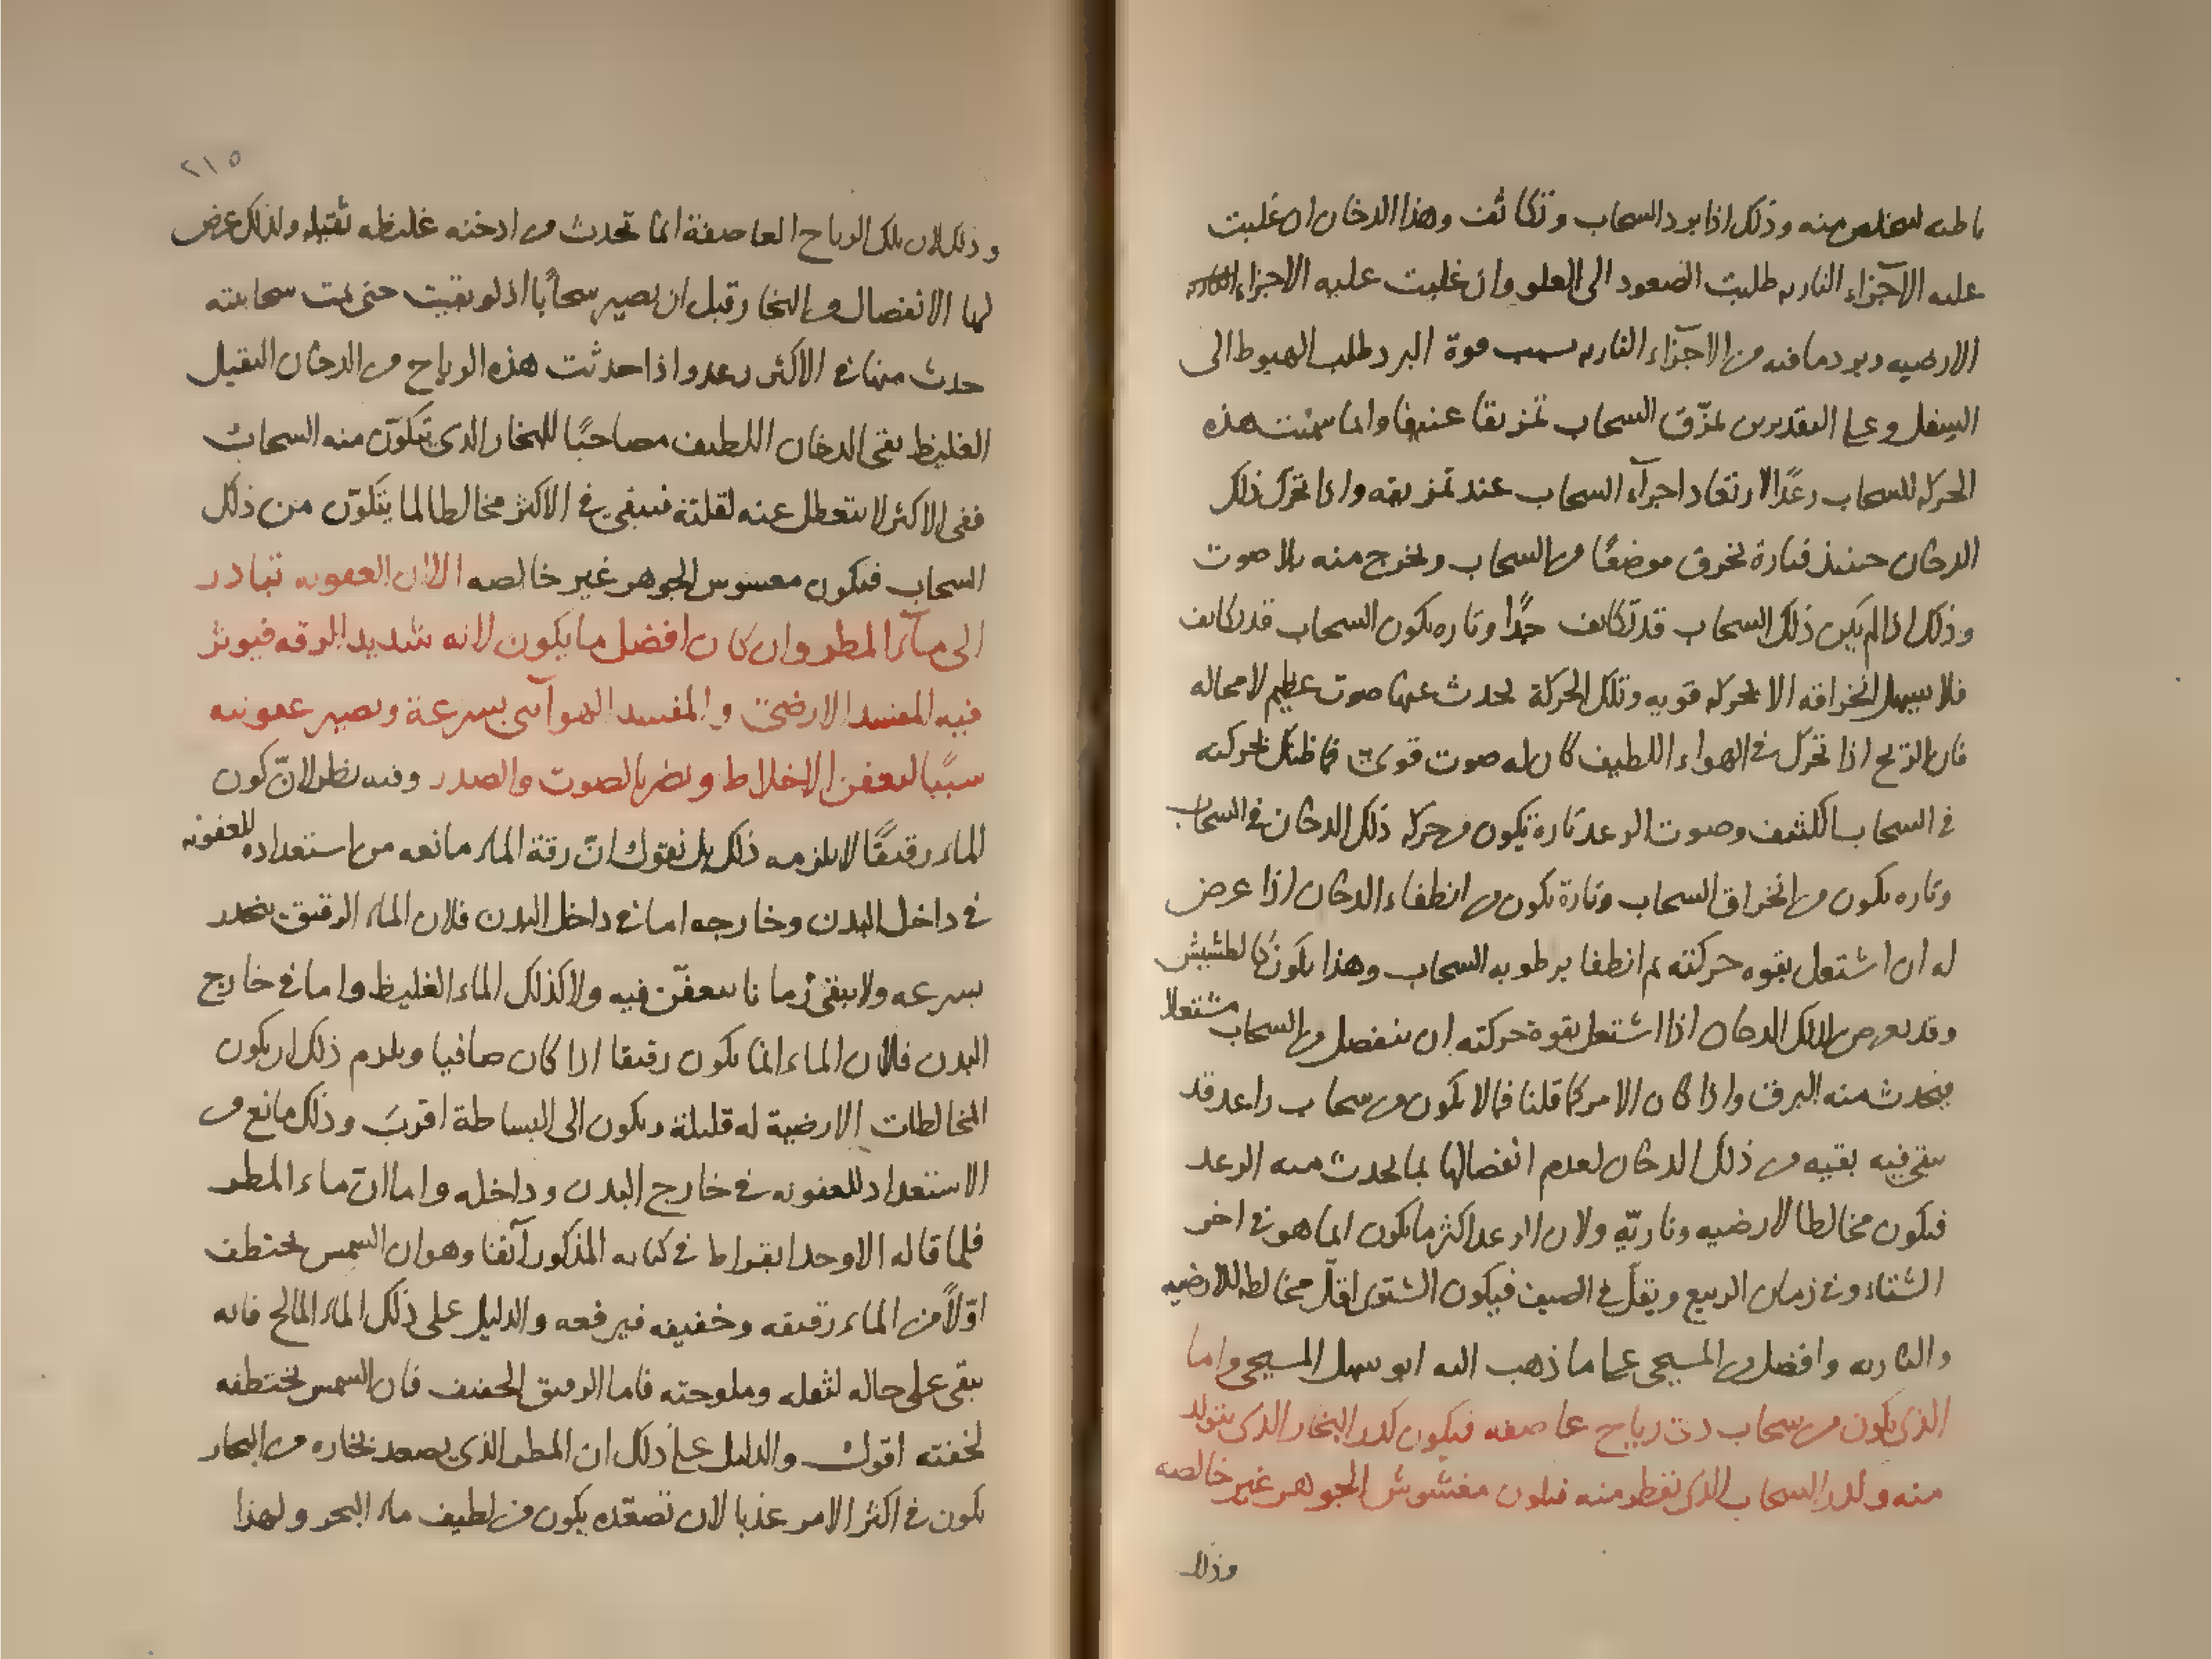 باطنه ليتخلص منه وذلك اذا برد السحاب وتكاثف وهذا الدخان ان غلبت
عليه الاجزاء الناريه طلبت الصعود الى العلو وان غلبت عليه الاجزاء
الارضيه وبرد ما فيه من الاجزاء الناريه بسبب قوة البرد طلب الهبوط الى
السفل وعلى التقديرين يمزّق السحاب تمزيقا عنيفا وانما سميت هذه
الحركه للسحاب رعدًا لارتعاد اجزآء السحاب عند تمزيقه واذا تحرك ذلك
الدخان حينئذ فتارة يخرق موضعًا من السحاب ويخرج منه بلا صوت
وذلك اذا لم يكن ذلك السحاب قد تكاثف جدًّا وتاره يكون السحاب قد تكاثف
فلا يسهل انخراقه الا بحركه قويه وتلك الحركة يحدث عنها صوت عظيم لا محاله
فان الريح اذا تحرك في الهواء اللطيف كان له صوت قوى فما ظنك بحركته
في السحاب الكثيف وصوت الرعد تارة يكون من حركه ذلك الدخان في السحاب
وتاره يكون من انخراق السحاب وتارة يكون من انطفاء الدخان اذا عرض
له ان اشتعل بقوه حركته ثم انطفا برطوبه السحاب وهذا يكون كالطشيش
وقد يعرض لذلك الدخان اذا اشتعل بقوة حركته ان ينفصل من السحاب مشتعلا
فيحدث منه البرق واذا كان الامر كما قلنا فما لا يكون من سحاب راعد قد
يبقى فيه بقيه من ذلك الدخان لعدم انفصالها بما يحدث منه الرعد
فيكون مخالطا لارضيه وناريّه ولان الرعد اكثر ما يكون انما هو في اخر
الشتاء وفي زمان الربيع ويقلّ في الصيف فيكون الشتوى اقلّ مخالطه للارضيه
والناريه وافضل من المسيحى على ما ذهب اليه ابو سهل المسيحى واما
الذى يكون من سحاب ذى رياح عاصفه فيكون كدر البخار الذى يتولد
منه وكدر السحاب الذى نقطر منه فيكون مغشوش الجوهر غير خالصه
وذلك
٢١٥
وذلك لان تلك الرياح العاصفة انما تحدث من ادخنه غليظه ثقيله ولذلك عرض
لها الانفصال من البخار قبل ان يصير سحاًبا اذ لو بقيت حتى تمت سحابيته
حدث منها في الاكثر رعد واذا حدثت هذه الرياح من الدخان الثقيل
الغليظ بقى الدخان اللطيف مصاحبًا للبخار الذى يتكوّن منه السحاب
ففى الاكثر لا ينعطل عنه لقلته فيبقى في الاكثر مخالطا لما يتكوّن من ذلك
السحاب فيكون مغشوش الجوهر غير خالصه الا ان العفونه تبادر
الى مآء المطر وان كان افضل ما يكون لانه شديد الرقه فيوثر
فيه المفسد الارضى والمفسد الهوآئى بسرعة وتصير عفونته
سببًا لتعفن الاخلاط ويضر بالصوت والصدر وفيه نظر لانّ كون
الماء رقيقًا لا يلزمه ذلك بل نقول انّ رقة الماء مانعه من استعداده للعفونه
في داخل البدن وخارجه اما في داخل البدن فلان الماء الرقيق ينحدر
بسرعه ولا يبقى زمانا يتعفّن فيه ولا كذلك الماء الغليظ واما في خارج
البدن فلان الماء انما يكون رقيقا اذا كان صافيا ويلزم ذلك ان يكون
المخالطات الارضية له قليلة ويكون الى البساطة اقربَ وذلك مانع من
الاستعداد للعفونه في خارج البدن وداخله واما انّ ماء المطر
فلما قاله الاوحد ابقراط في كتابه المذكور آنفا وهو ان الشمس تختطف
اوّلاً من الماء رقيقه وخفيفه فيرفعه والدليل على ذلك الماء المالح فانه
يبقى على حاله لثقله وملوحته فاما الرقيق الخفيف فان الشمس تختطفه
لخفته اقول والدليل على ذلك ان المطر الذي يصعد بخاره من البحار
يكون في اكثر الامر عذبا لان تصعّده يكون من لطيف ماء البحر ولهذا